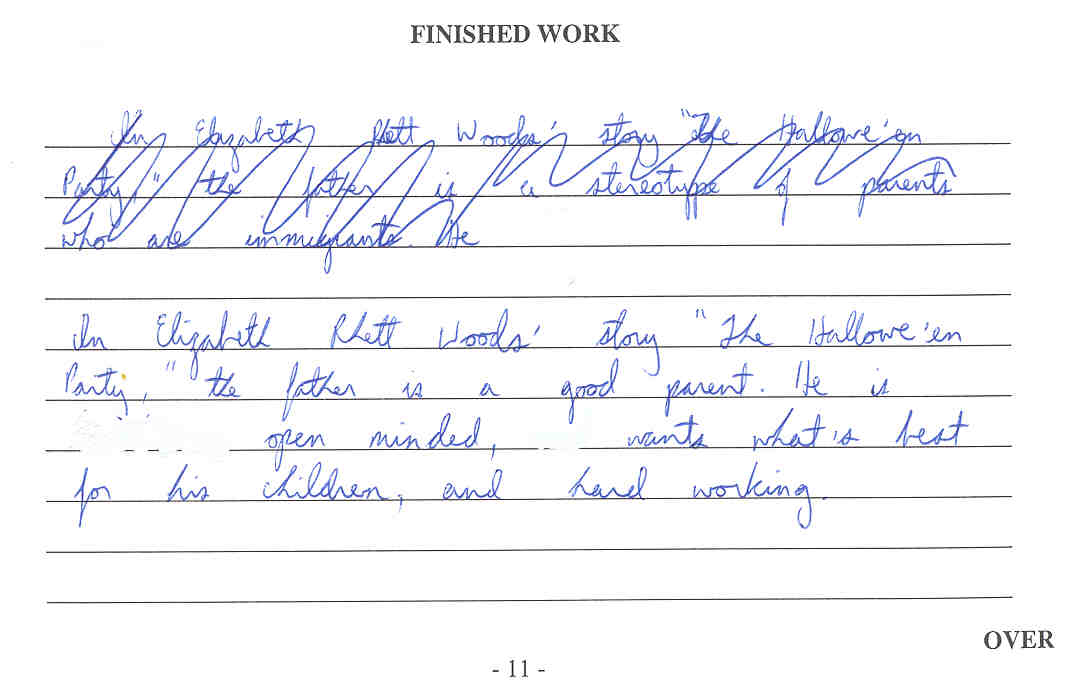 FINISHED WORK
In Elizabeth Rhett Woods' story "The Hallowe'en
Party," the father is a stereotype of parents
who are immigrants. He
In Elizabeth Rhett Woods' story "The Hallowe'en
Party," the father is a good parent. He is
open minded, wants what's best
for his children, and hard working.
OVER
- 11 -